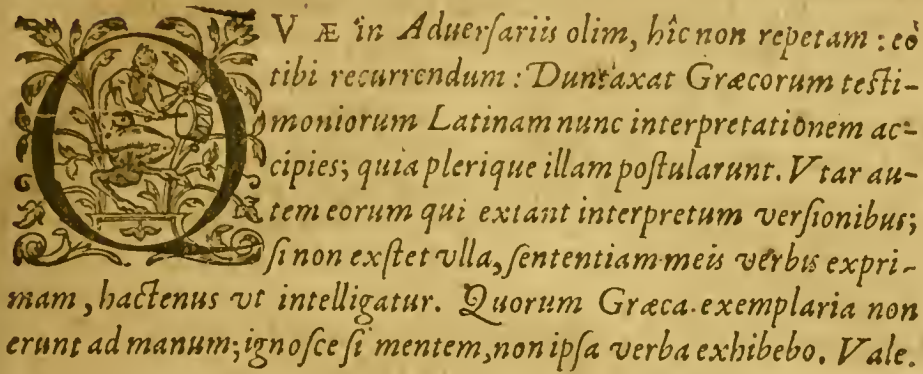 QVÆ in Aduerſariis olim, hîc non repetam : eò
tibi recurrendum : Duntaxat Græcorum teſti-
moniorum Latinam nunc interpretationem ac-
cipies; quia plerique illam poſtularunt. Vtar au-
tem eorum qui extant interpretum verſionibus;
ſi non exſtet vlla, ſententiam meis verbis expri-
mam, hactenus vt intelligatur. Quorum Græca exemplaria non
erunt ad manum; ignoſce ſi mentem, non ipſa verba exhibebo. Vale.